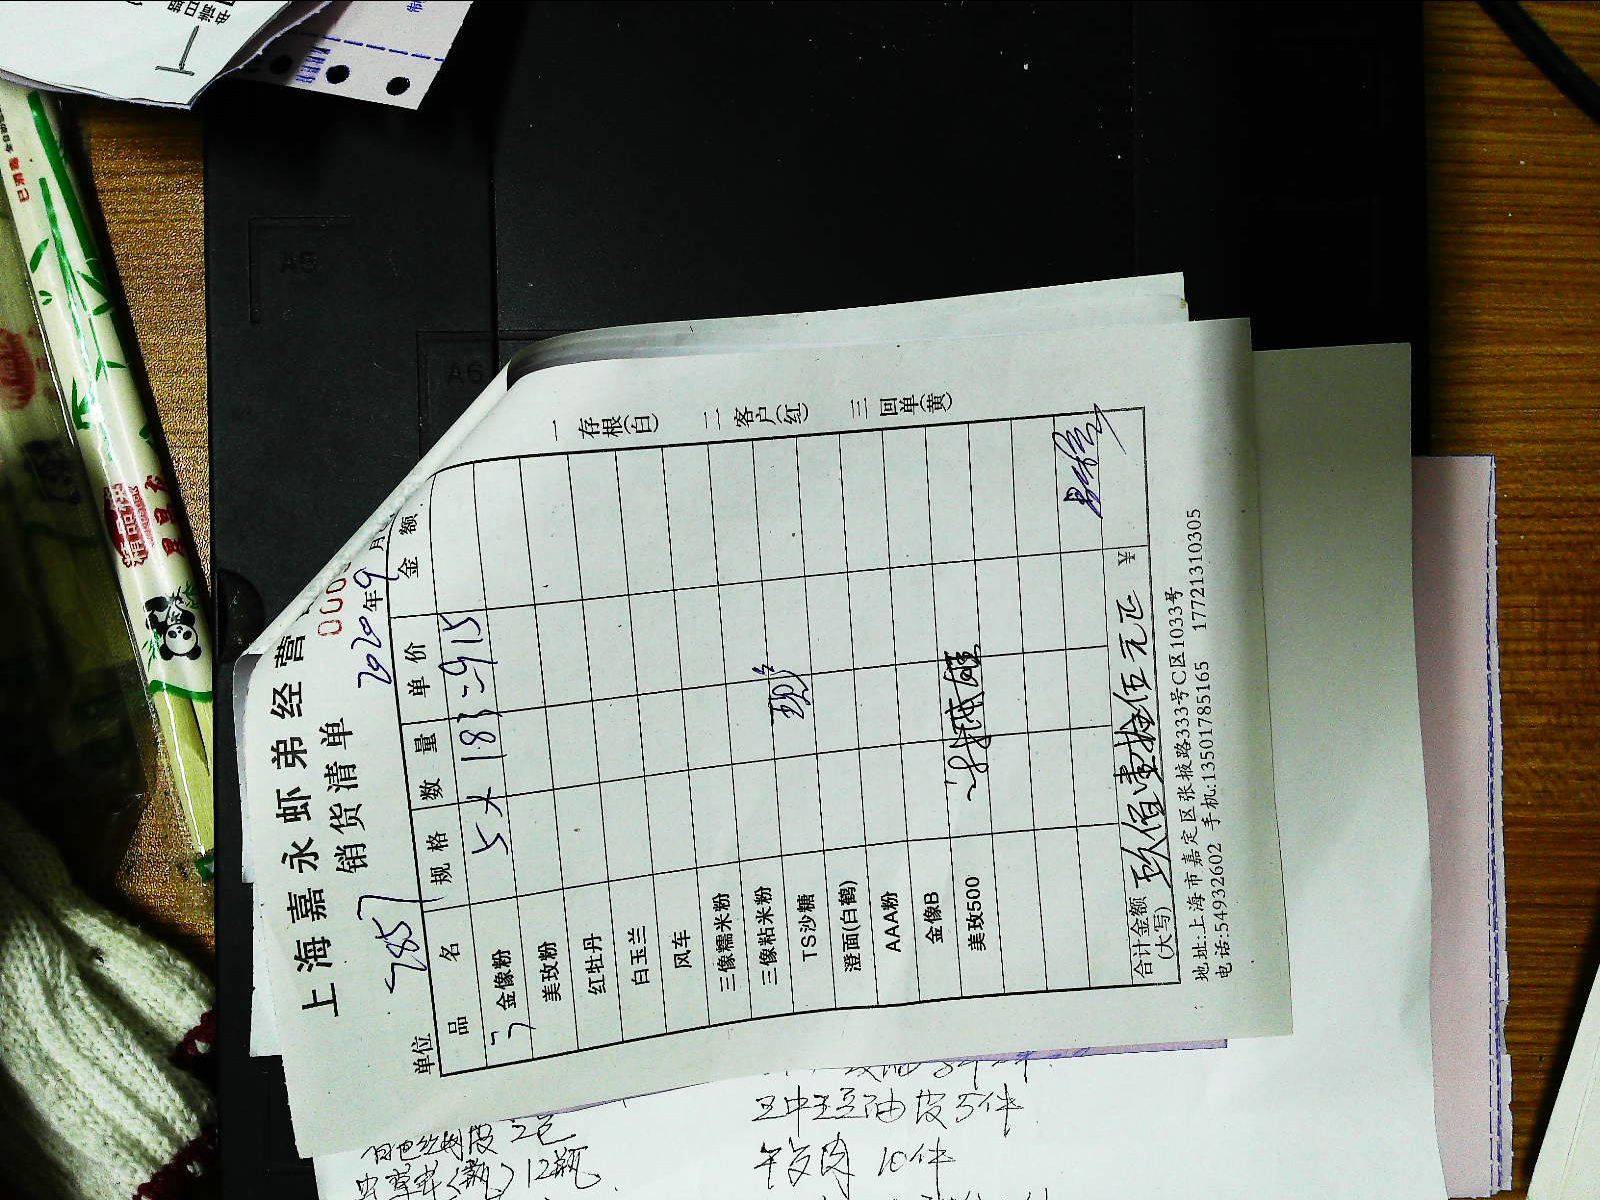 上海嘉永虾弟经营
销货清单
000
单位 7857 2020年9月
品名 规格 数量 单价 金额
金像粉 5 × 183 = 915
美玫粉
红牡丹
白玉兰
风车
三像糯米粉
三像粘米粉
TS沙糖
澄面(白鹤)
AAA粉
金像B
美玫500
合计金额(大写) 玖佰壹拾伍元正 ¥
地址:上海市嘉定区张掖路333号C区1033号
电话:54932602 手机:13501785165 17721310305
一存根(白) 二客户(红) 三回单(黄)
12瓶
王中王豆油皮5件
10件
A5
A6
精品筷
已消毒